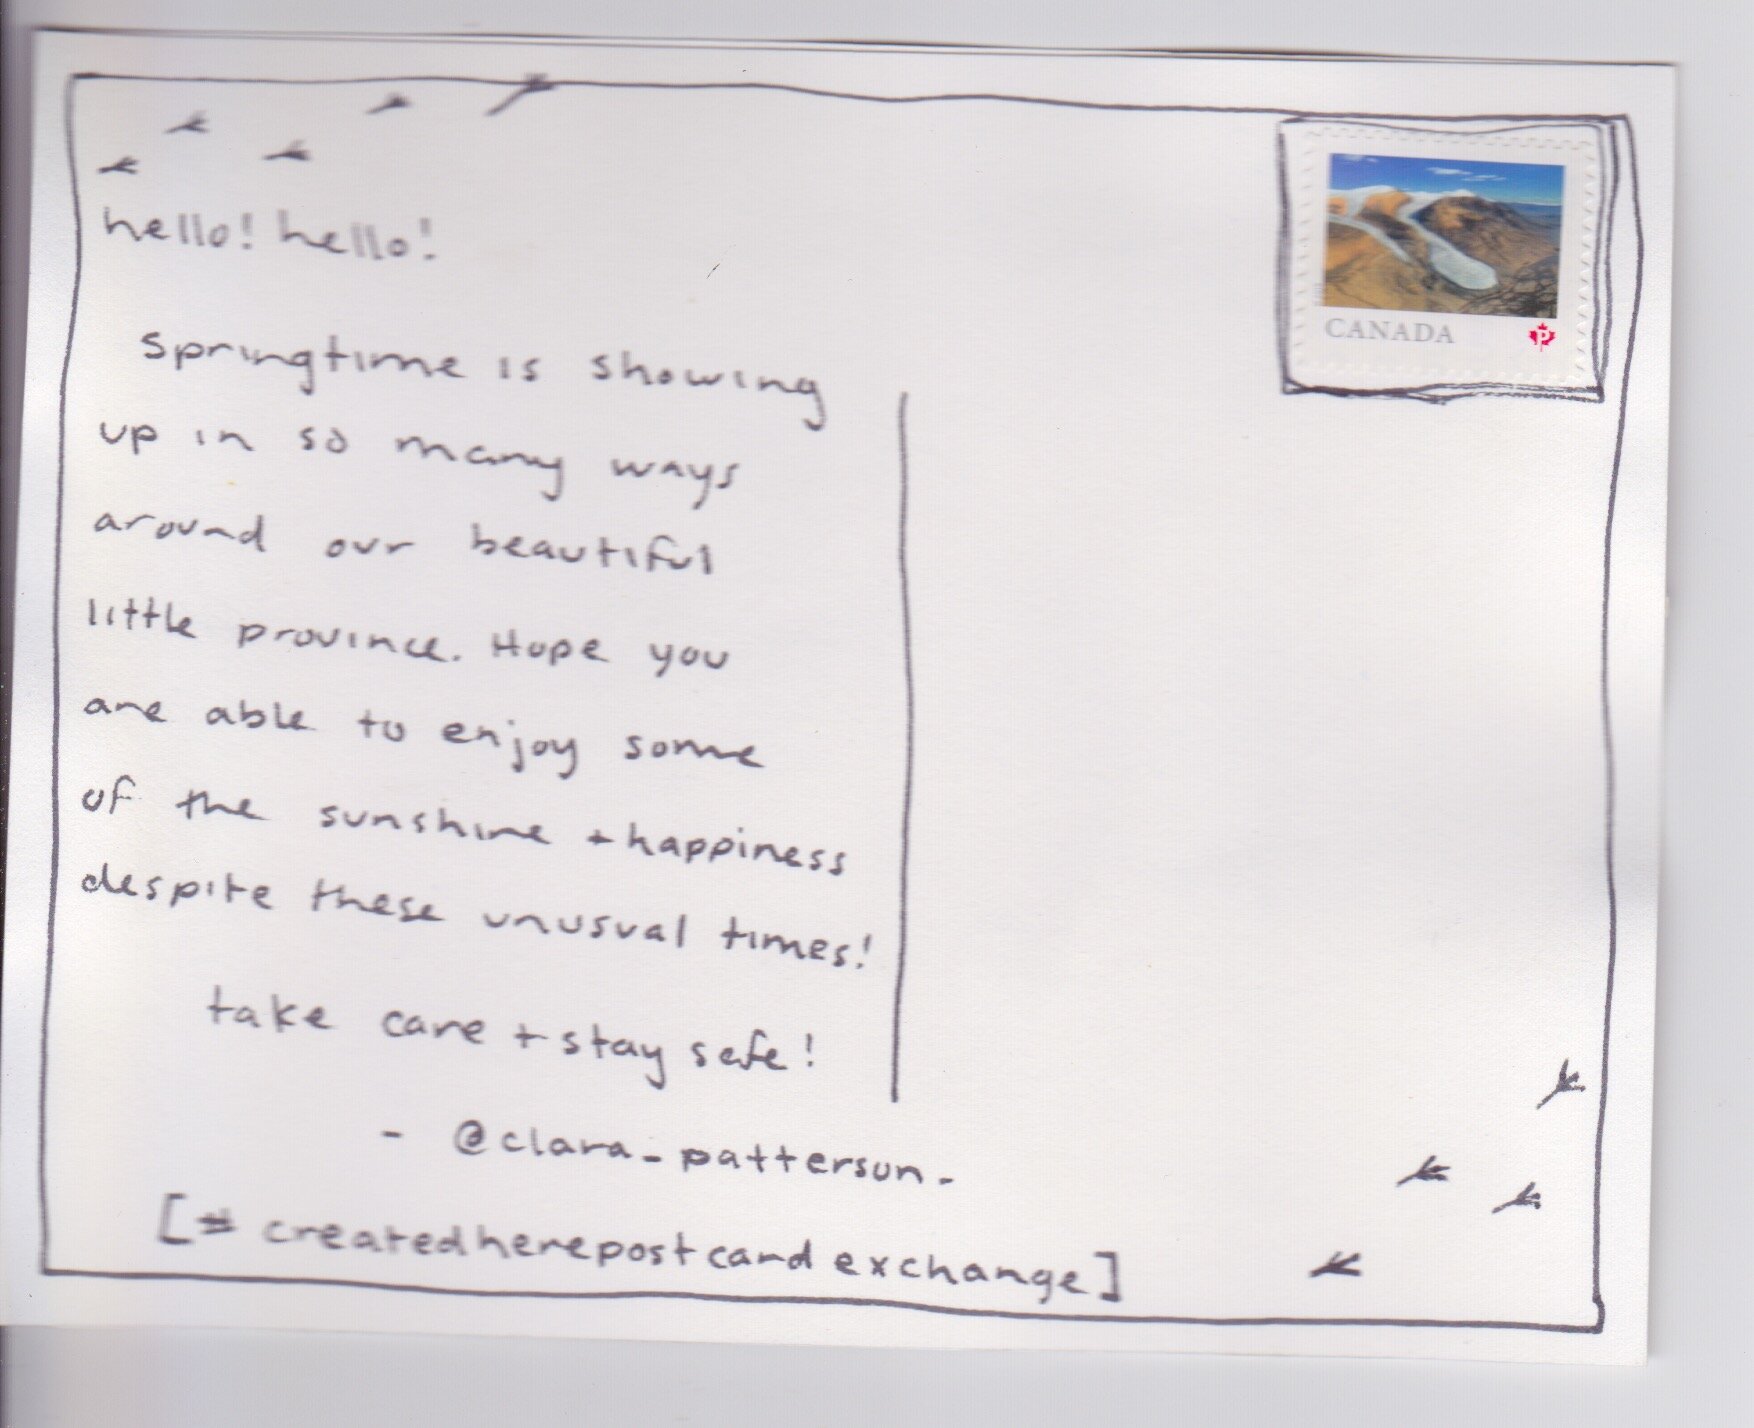 hello! hello!
Springtime is showing
up in so many ways
around our beautiful
little province. Hope you
are able to enjoy some
of the sunshine + happiness
despite these unusual times!
take care + stay safe!
- @clara_patterson_
[# createdherepostcardexchange]
CANADA
P